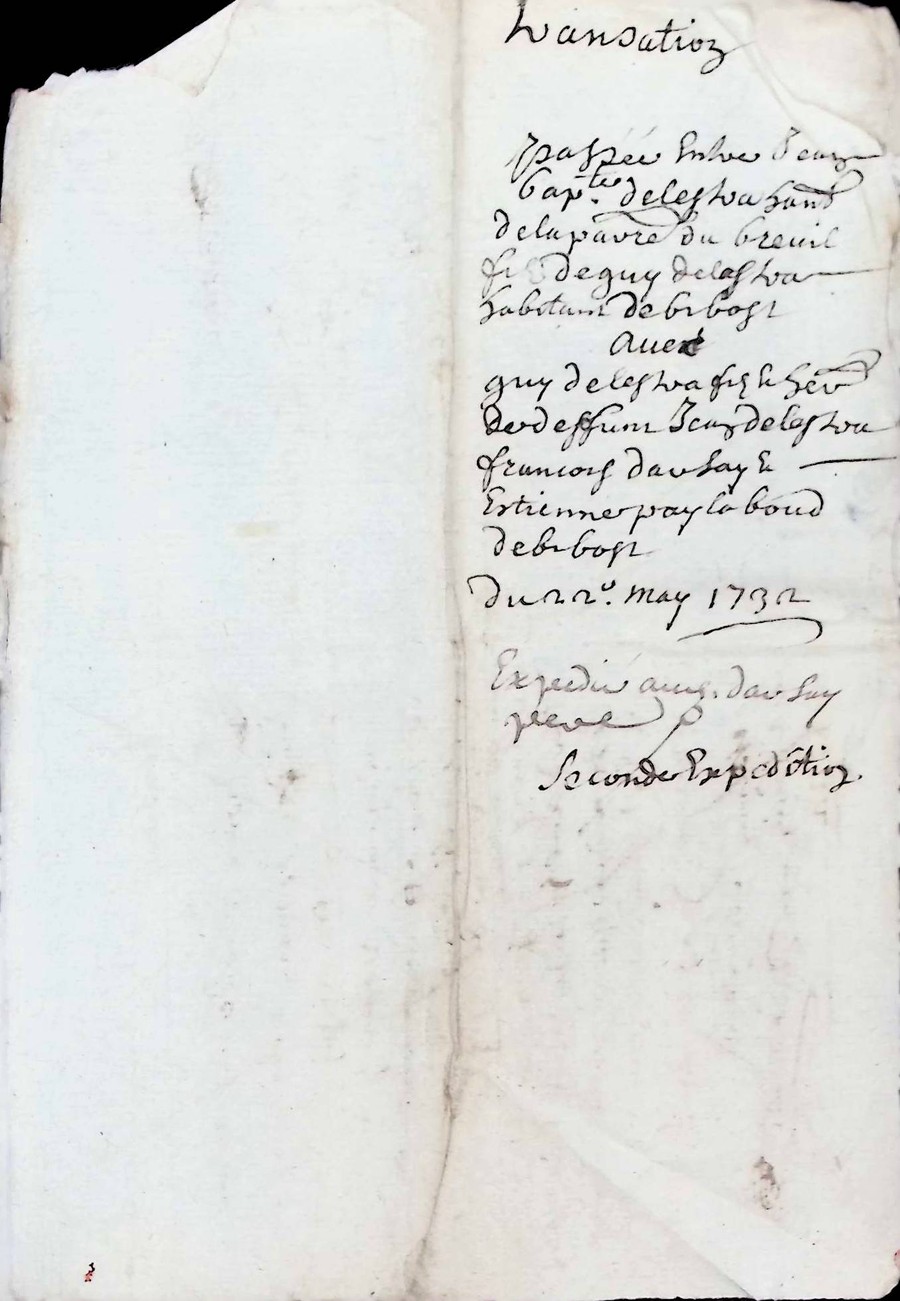 transaction
passée Entre Jean
bapt.te delestra hant
delapavre du breuil
fils deguy delestra
habitant debibost
avec
guy delestra fils & her
dedeffunt Jean delestra
francois darhay &
Estienne pay laboud
debibost
du 22e. may 1732
Expedié aud. darhay
pere
Seconde Expedition